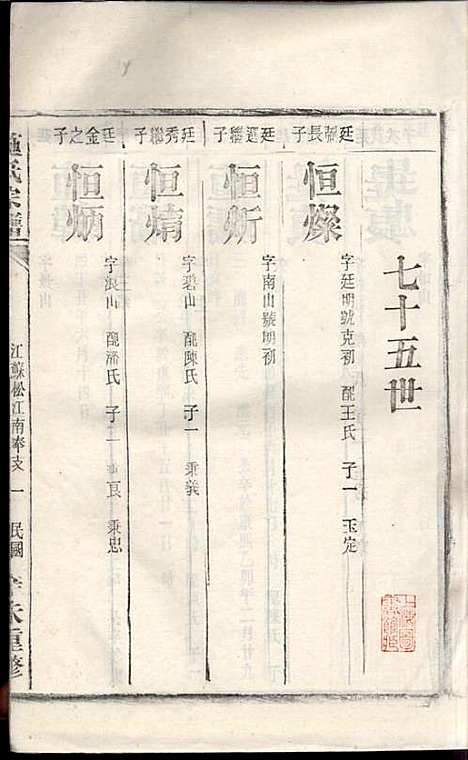 七十五世
廷獅長子
恒燦
字廷明號克初 配王氏 子一 玉定
廷選繼子
恒炘
字南山號明初
廷秀繼子
恒焴
字碧山 配陳氏 子一 秉義
廷金之子
恒炳
字浪山 配潘氏 子二 秉良 秉忠
氏宗譜
江蘇松江南奉支 一 民國
重修